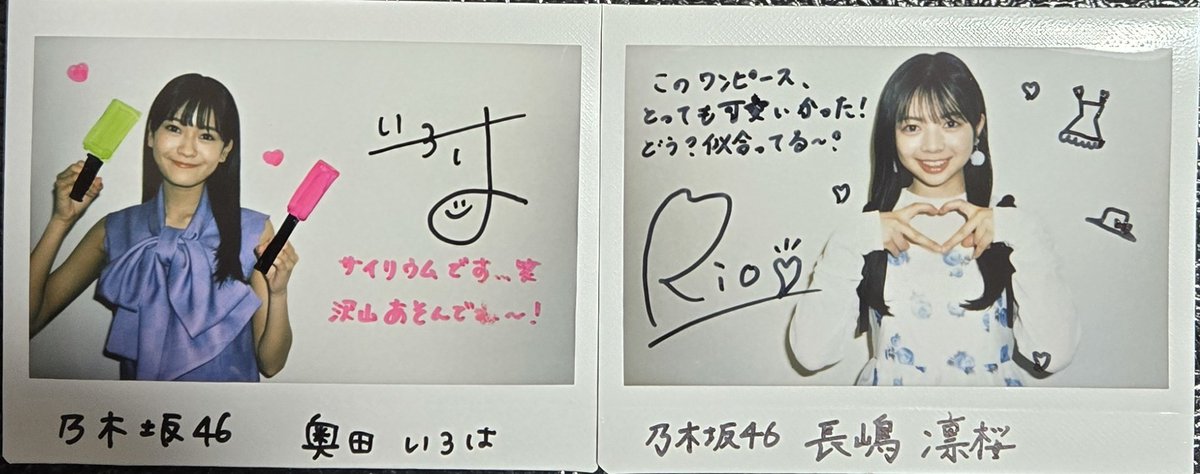 いろは
サイリウムです、、笑
沢山あそんでね〜!
乃木坂46 奥田いろは
このワンピース、
とっても可愛いかった!
どう?似合ってる〜?
Rio
乃木坂46 長嶋凛桜